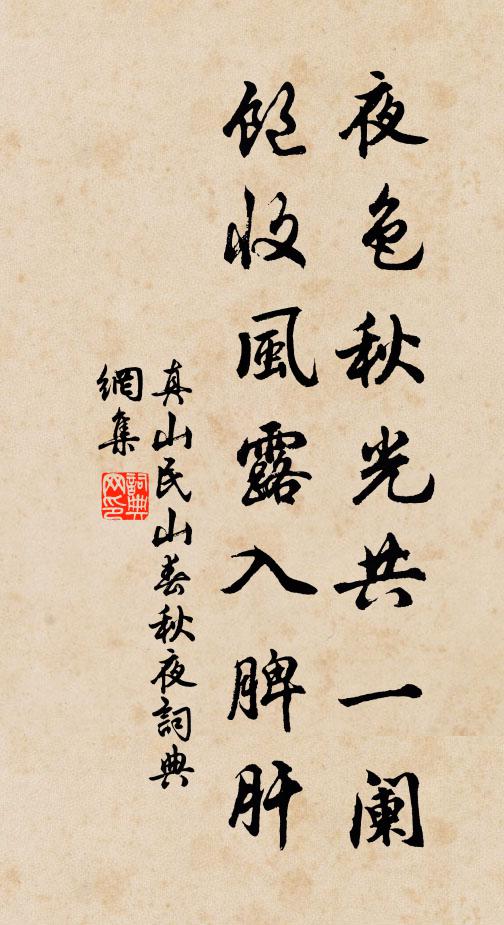 夜色秋光共一阑
飽收風露入脾肝
真山民山春秋夜詞典
網集
詞典网印